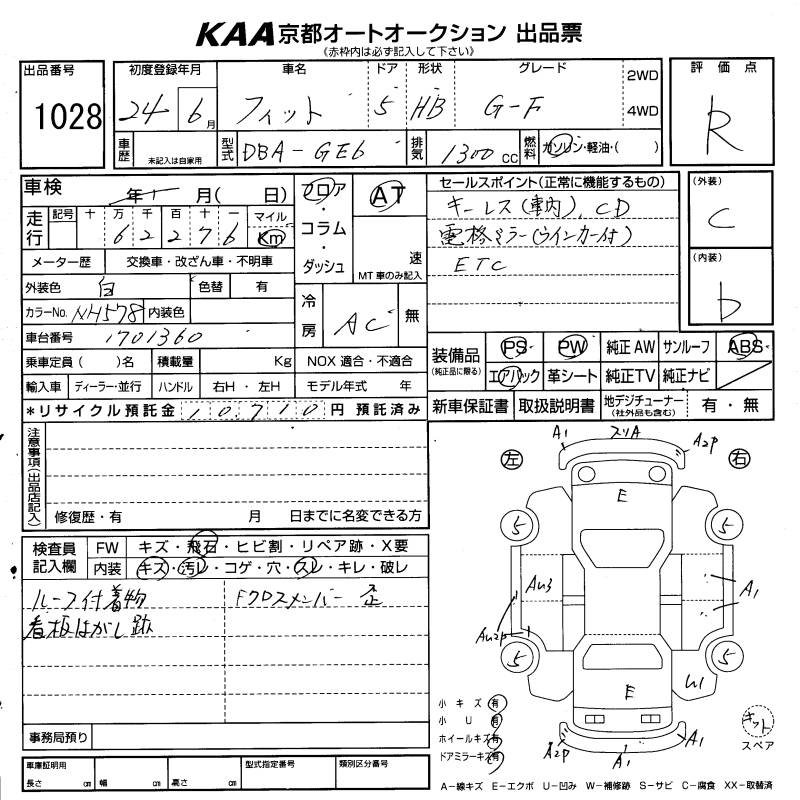 KAA京都オートオークション 出品票
(赤枠内は必ず記入して下さい)
出品番号
1028
初度登録年月 車名 ドア 形状 グレード
24 6月 フィット 5 HB G-F
2WD
4WD
車歴 未記入は自家用
型式 DBA-GE6
排気 1300 CC
燃料 ガソリン・軽油・( )
評価点
R
車検 年 月( 日)
走行 記号 十 万 千 百 十 一 マイル
6 2 2 7 6 Km
メーター歴 交換車・改ざん車・不明車
外装色 白 色替 有
カラーNo. NH578 内装色
車台番号 1701360
乗車定員 ( )名 積載量 Kg
輸入車 ディーラー・並行 ハンドル 右H・左H
*リサイクル預託金 10,710円 預託済み
フロア・コラム・ダッシュ
AT
速
MT車のみ記入
冷房 AC 無
NOX 適合・不適合
モデル年式 年
セールスポイント(正常に機能するもの)
キーレス(車内)、CD
電格ミラー(ウインカー付)
ETC
(外装)
C
(内装)
D
装備品
(純正品に限る)
PS PW 純正AW サンルーフ ABS
エアバック 革シート 純正TV 純正ナビ
新車保証書 取扱説明書 地デジチューナー
(社外品も含む)
有・無
注意事項(出品店記入)
修復歴・有 月 日までに名変できる方
検査員記入欄
FW キズ・飛石・ヒビ割・リペア跡・X要
内装 キズ・汚レ・コゲ・穴・スレ・キレ・破レ
ルーフ付着物 Fクロスメンバー 歪
看板はがし跡
事務局預り
車庫証明用
長さ cm 幅 cm 高さ cm
型式指定番号
類別区分番号
左
右
A1 スリA A2P
E
5 5
AU3
A1
AU2P
5 5
E
U1
A2P A1 A1
小キズ 有
小U 有
ホイールキズ 有
ドアミラーキズ 有
キット
スペア
A-線キズ E-エクボ U-凹み W-補修跡 S-サビ C-腐食 XX-取替済